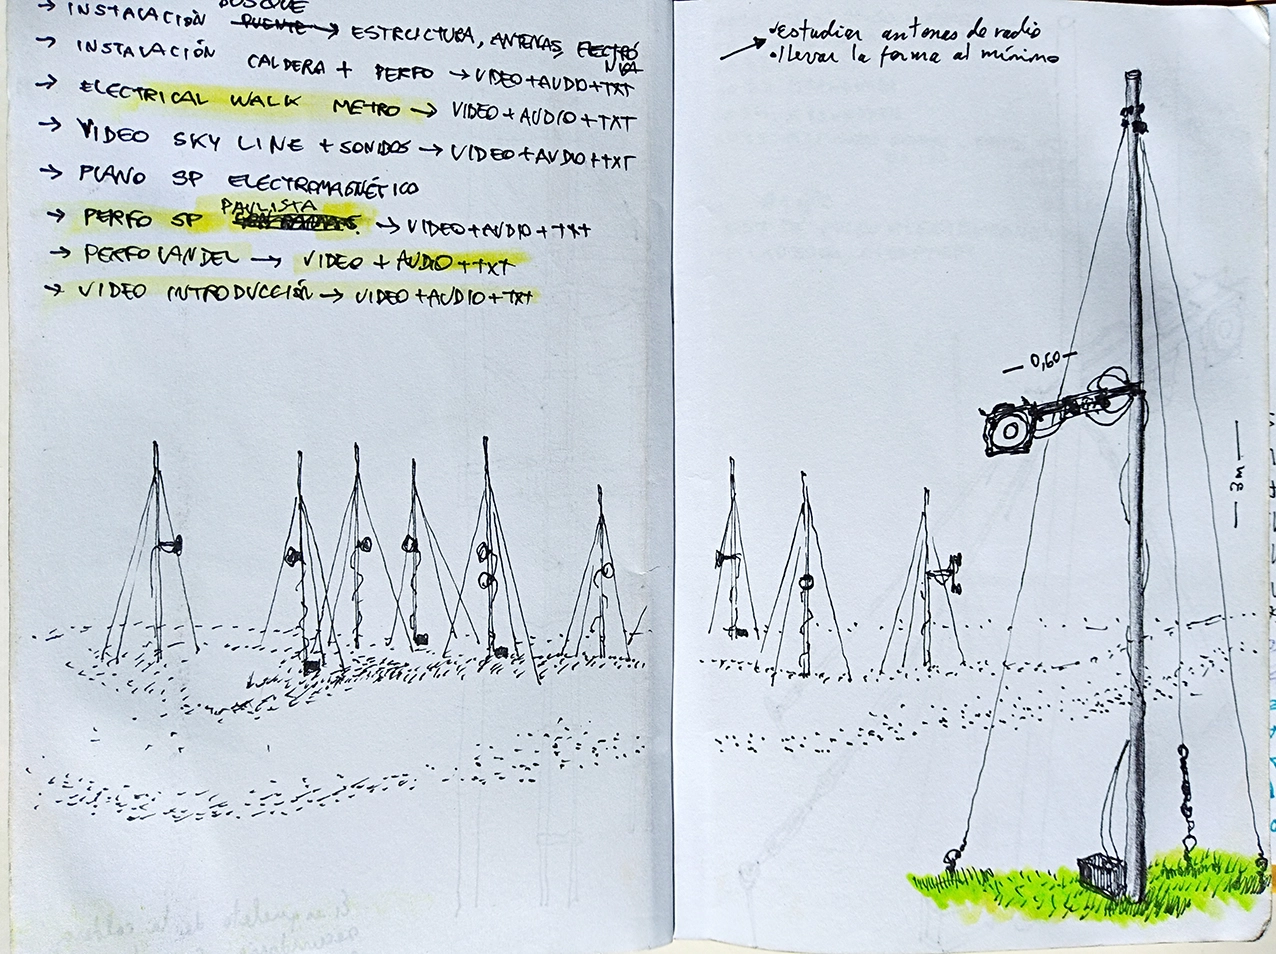 BOSQUE
→ INSTALACIÓN PUENTE → ESTRUCTURA, ANTENAS, ELECTRÓ
NICA
→ INSTALACIÓN CALDERA + PERFO → VIDEO+AUDIO+TXT
→ ELECTRICAL WALK METRO → VIDEO+AUDIO+TXT
→ VIDEO SKY LINE + SONIDOS → VIDEO+AUDIO+TXT
→ PLANO SP ELECTROMAGNÉTICO
PAULISTA
→ PERFO SP → VIDEO+AUDIO+TXT
→ PERFO LANDEL → VIDEO + AUDIO+TXT
→ VIDEO INTRODUCCIÓN → VIDEO+AUDIO+TXT
• estudiar antenas de radio
• llevar la forma al mínimo
— 0,60 —
— 3m —